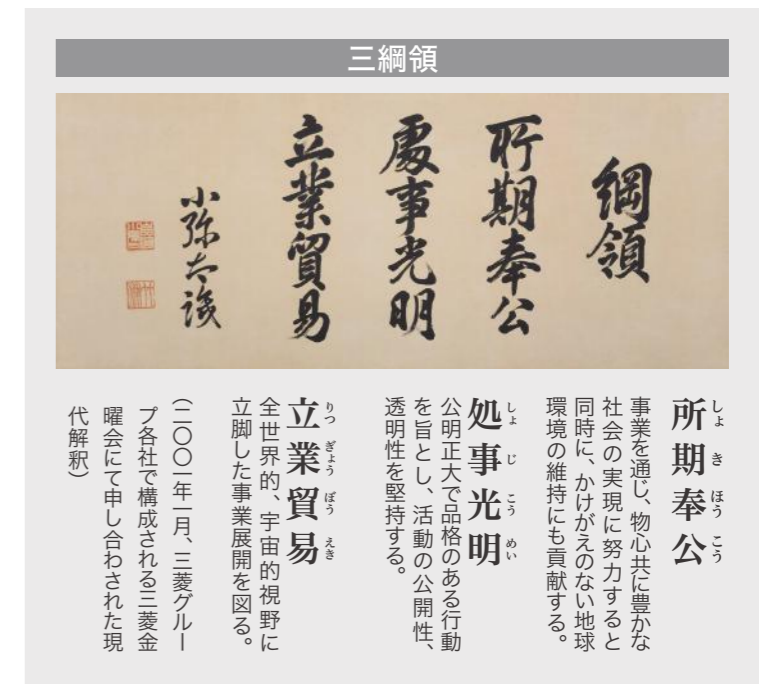 三綱領
綱領
所期奉公
處事光明
立業貿易
小弥太議
所期奉公
しょきほうこう
事業を通じ、物心共に豊かな
社会の実現に努力すると
同時に、かけがえのない地球
環境の維持にも貢献する。
処事光明
しょじこうめい
公明正大で品格のある行動
を旨とし、活動の公開性、
透明性を堅持する。
立業貿易
りつぎょうぼうえき
全世界的、宇宙的視野に
立脚した事業展開を図る。
（二〇〇一年一月、三菱グルー
プ各社で構成される三菱金
曜会にて申し合わされた現
代解釈）